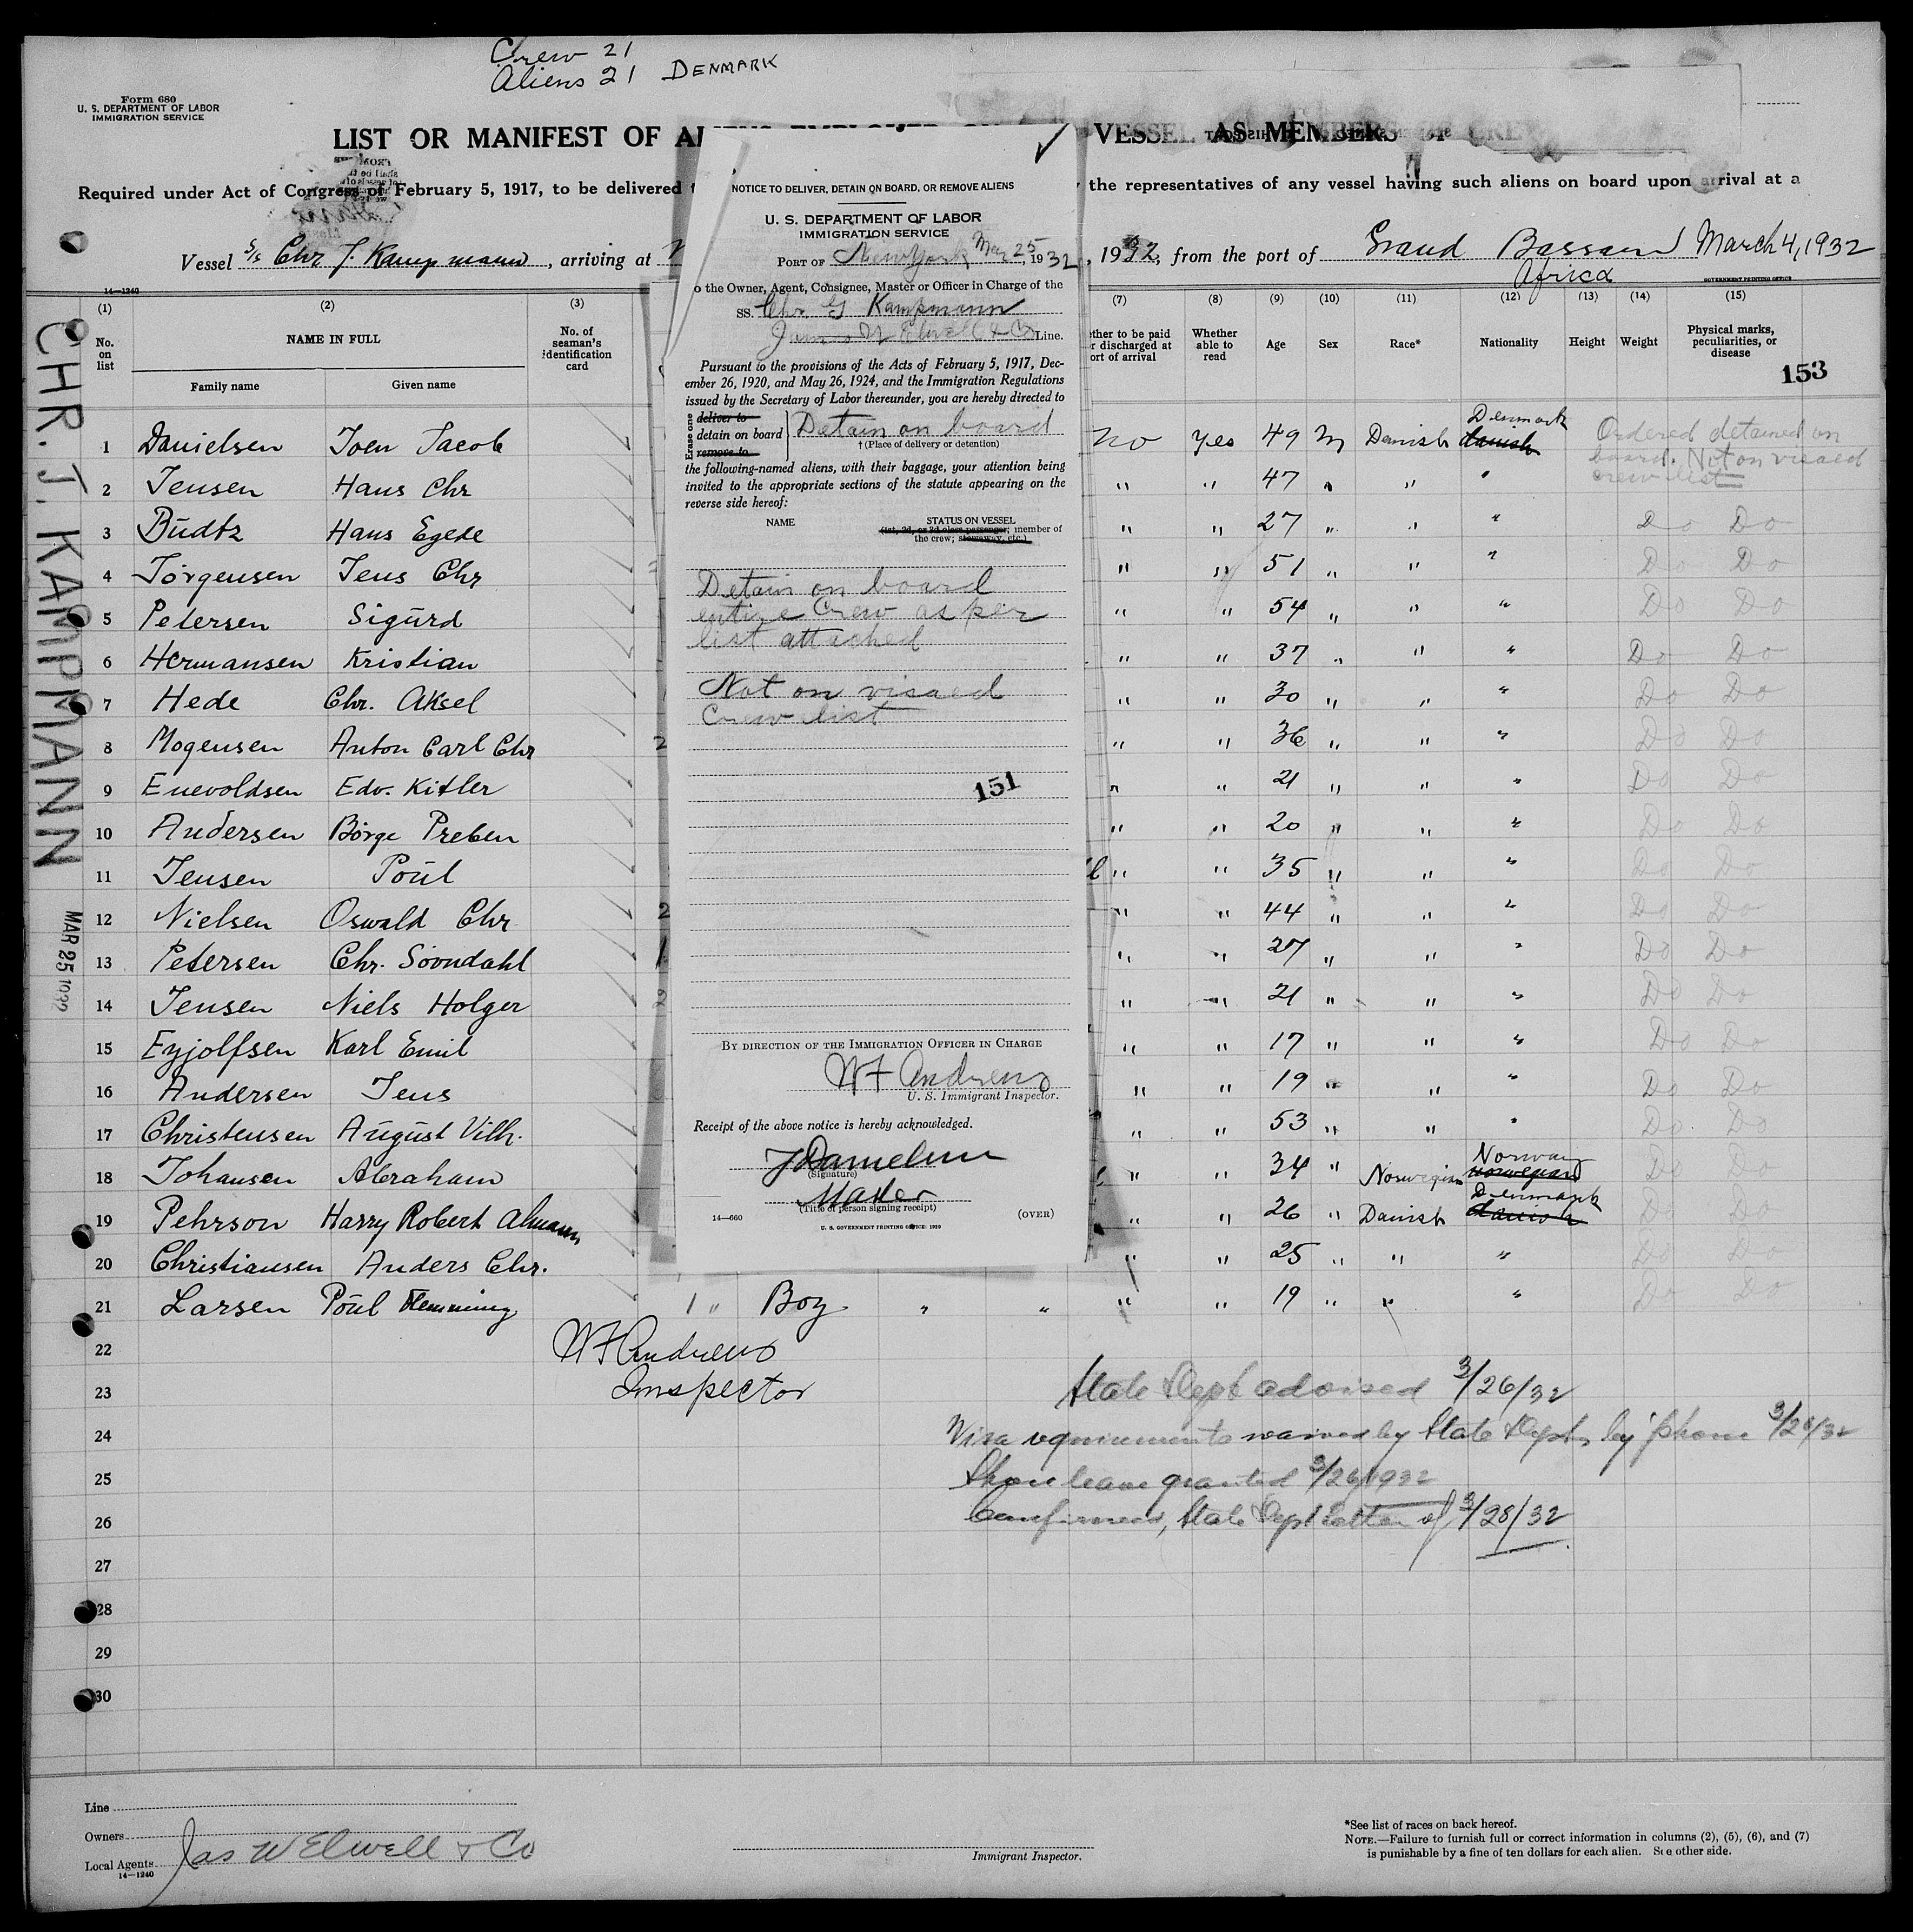 Crew 21
Aliens 21 DENMARK
Form 680
U. S. DEPARTMENT OF LABOR
IMMIGRATION SERVICE
LIST OR MANIFEST OF VESSEL AS MEMBERS OF CREW
Required under Act of Congress of February 5, 1917, to be delivered the representatives of any vessel having such aliens on board upon arrival at a
Vessel S/s Chr J. Kampmann, arriving at , 1932, from the port of Grand Bassam March 4, 1932
Africa
14—1240
GOVERNMENT PRINTING OFFICE
(1) (2) (3) (7) (8) (9) (10) (11) (12) (13) (14) (15)
No. on list NAME IN FULL No. of seaman's identification card
Family name Given name
ther to be paid r discharged at ort of arrival Whether able to read Age Sex Race* Nationality Height Weight Physical marks, peculiarities, or disease
153
CHR. J. KAMPMANN
MAR 25 1932
1 Danielsen Joen Jacob no yes 49 M Danish danish Denmark Ordered detained on board. Not on visaed crew list
2 Jensen Hans Chr " " 47 " " "
3 Budtz Hans Egede " " 27 " " " Do Do
4 Jörgensen Jens Chr " " 51 " " " Do Do
5 Petersen Sigurd " " 54 " " " Do Do
6 Hermansen Kristian " " 37 " " " Do Do
7 Hede Chr. Aksel " " 30 " " " Do Do
8 Mogensen Anton Carl Chr 2 " " 36 " " " Do Do
9 Enevoldsen Edv. Kitler " " 21 " " " Do Do
10 Andersen Börge Preben " " 20 " " " Do Do
11 Jensen Poul " " 35 " " " Do Do
12 Nielsen Oswald Chr 2 " " 44 " " " Do Do
13 Petersen Chr. Sövndahl 1 " " 27 " " " Do Do
14 Jensen Niels Holger 2 " " 21 " " " Do Do
15 Eyjolfsen Karl Emil " " 17 " " " Do Do
16 Andersen Jens " " 19 " " " Do Do
17 Christensen August Vilh. " " 53 " " " Do Do
18 Johansen Abraham " " 34 " Norwegian norwegian Norway Do Do
19 Pehrson Harry Robert Almann " " 26 " Danish danish Denmark Do Do
20 Christiansen Anders Chr. " " 25 " " " Do Do
21 Larsen Poul Flemming 1 " Boy " " " " 19 " " " Do Do
22 WF Andrews
23 Inspector State Dept advised 3/26/32
24 Visa requirements waived by State Dept, by phone 3/26/32
25 Shore leave granted 3/26/1932
26 Confirmed, State Dept Letter of 3/28/32
27
28
29
30
NOTICE TO DELIVER, DETAIN ON BOARD, OR REMOVE ALIENS
U. S. DEPARTMENT OF LABOR
IMMIGRATION SERVICE
PORT OF New York Mar 25, 1932
o the Owner, Agent, Consignee, Master or Officer in Charge of the
SS. Chr. G Kampmann
James W Elwell & Co Line.
Pursuant to the provisions of the Acts of February 5, 1917, Dec-
ember 26, 1920, and May 26, 1924, and the Immigration Regulations
issued by the Secretary of Labor thereunder, you are hereby directed to
Erase one
deliver to
detain on board Detain on board
remove to † (Place of delivery or detention)
the following-named aliens, with their baggage, your attention being
invited to the appropriate sections of the statute appearing on the
reverse side hereof:
NAME STATUS ON VESSEL
(1st, 2d, or 3d class passenger; member of
the crew; stowaway, etc.)
Detain on board
entire Crew as per
list attached
Not on visaed
Crew list
151
BY DIRECTION OF THE IMMIGRATION OFFICER IN CHARGE
WF Andrews
U. S. Immigrant Inspector.
Receipt of the above notice is hereby acknowledged.
J Danielsen
(Signature)
Master
(Title of person signing receipt)
14—660 (OVER)
U. S. GOVERNMENT PRINTING OFFICE:
Line
Owners
Local Agents Jas W Elwell & Co
14—1240
Immigrant Inspector.
*See list of races on back hereof.
NOTE.—Failure to furnish full or correct information in columns (2), (5), (6), and (7)
is punishable by a fine of ten dollars for each alien. See other side.